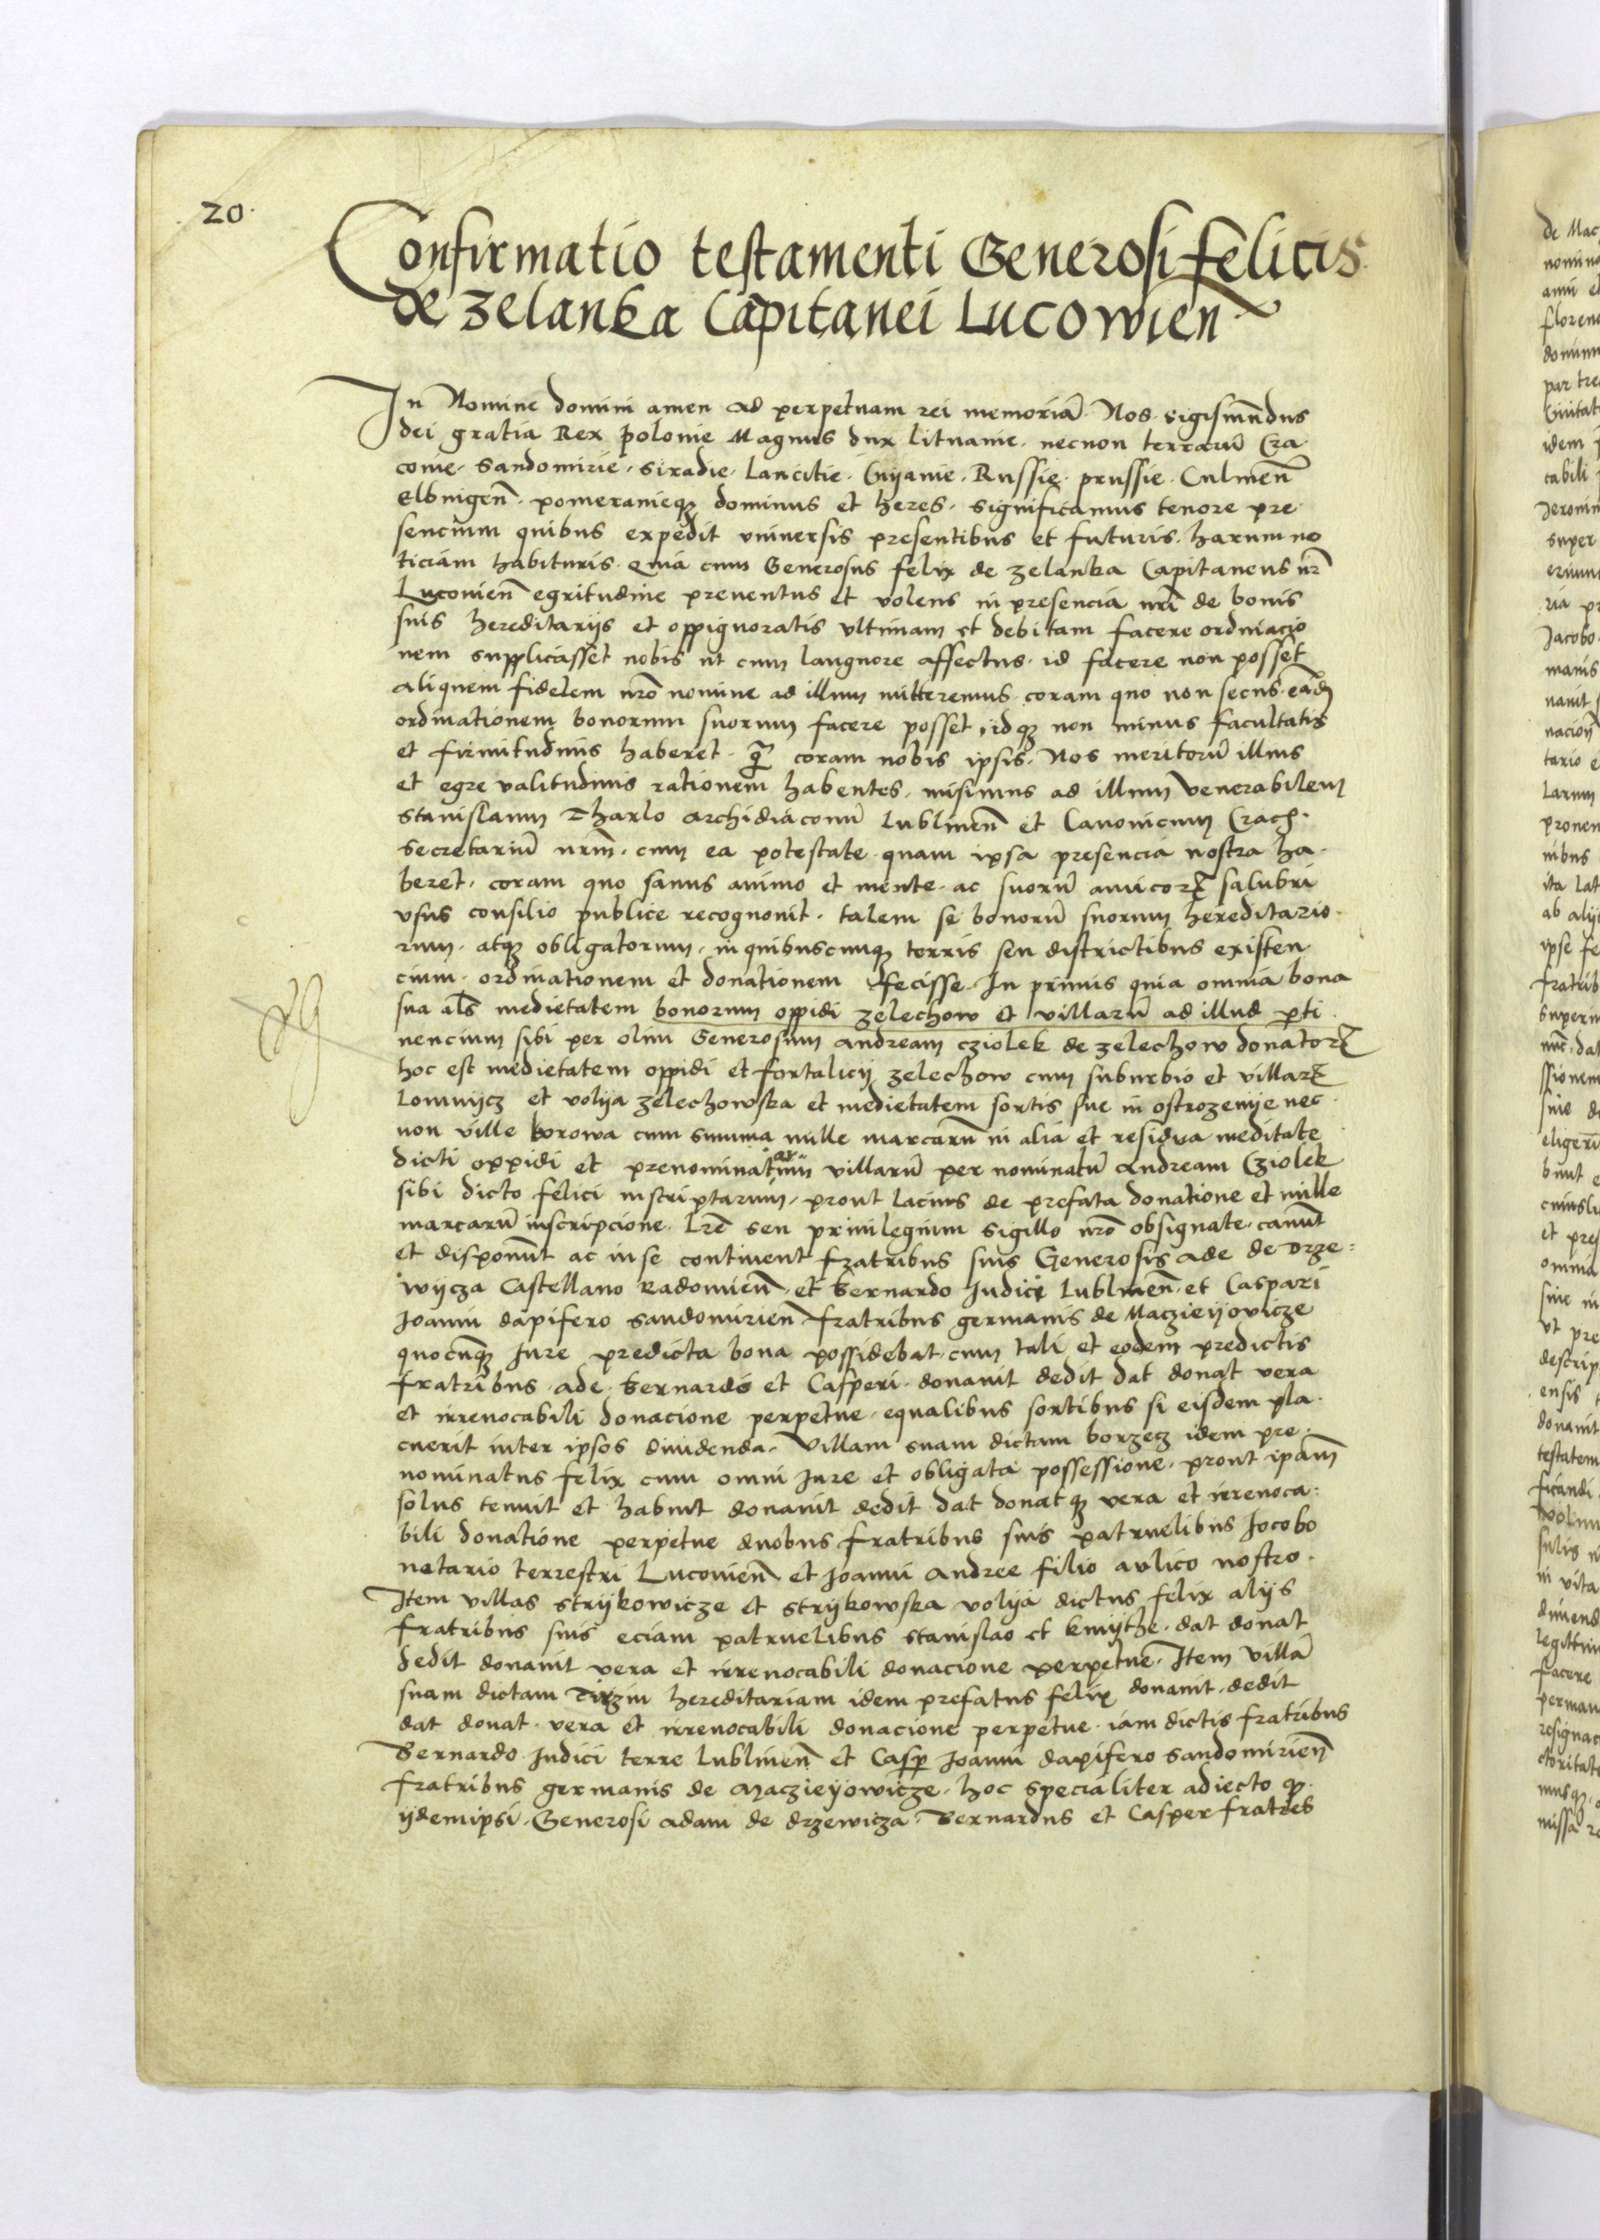 20.
Confirmatio testamenti Generosi felicis
de zelanka Capitanei Lucowien̄
In Nomine domini amen ad perpetuam rei memoriā. Nos sigismūdus
dei gratia Rex polonie Magnus dux lituanie. necnon terrarū Cra
couie. Sandomirie. siradie. Lancitie. Cuyauie. Russie. prussie. Culmen̄
Elbingen̄. pomeranieqꝫ dominus et heres. significamus tenore pre
sencium quibus expedit vniuersis presentibus et futuris. harum no
ticiam habituris. Quia cum Generosus felix de zelanka Capitaneus nr̄
Lucouien̄ egritudine preuentus et volens in presencia nr̄i de bonis
suis hereditarijs et oppignoratis vltimam et debitam facere ordinacio
nem supplicasset nobis ut cum languore affectus. id facere non posset
aliquem fidelem nr̄o nomine ad illum mitteremus. coram quo non secus eādē
ordinationem bonorum suorum facere posset, idqꝫ non minus facultatis
et firmitudinis haberet. q̄ coram nobis ipsis. Nos meritorū illius
et egre valitudinis rationem habentes. misimus ad illum venerabilem
stanislaum Tharlo archidiaconū lublinen̄ et Canonicum Crac̄.
secretariū nr̄m. cum ea potestate. quam ipsa presencia nostra ha
beret. coram quo sanus animo et mente. ac suorū amicorꝝ salubri
vsus consilio publice recognouit. talem se bonorū suorum hereditario
rum. atqꝫ obligatorum. in quibuscumqꝫ terris seu districtibus existen
cium. ordinationem et donationem fecisse. In primis quia omnia bona
sua al̄s medietatem bonorum oppidi zelechow et villarū ad illud ꝑti
nencium sibi per olim Generosum andream cziolek de zelechow donatorꝝ
hoc est medietatem oppidi et fortalicij zelechow cum suburbio et villarꝝ
Lomnijcz et volya zelechowska et medietatem sortis sue in ostrozenije nec
non ville borowa cum summa mille marcarū in alia et residua meditate
dicti oppidi et prenominatarum villarū per nominatū andream Cziolek
sibi dicto felici inscriptarum. prout lacius de prefata donatione et mille
marcarū inscripcione. Lr̄e seu priuilegium sigillo nr̄o obsignate. canūt
et disponūt ac in se continent fratribus suis Generosis ade de Drze=
wijcza Castellano Radomien̄. et bernardo Iudici Lublinen̄. et Caspari
Joanni dapifero sandomirien̄ fratribus germanis de Maczieijowicze
quocūqꝫ Iure predicta bona possidebat. cum tali et eodem predictis
fratribus. ade. bernardo et Casperi. donauit dedit dat donat vera
et irreuocabili donacione perpetue. equalibus sortibus si eisdem pla
cuerit inter ipsos diuidenda. Villam suam dictam borzecz idem pre
nominatus felix cum omni Iure et obligata possessione. prout ip̄am
solus tenuit et habuit donauit dedit dat donatqꝫ vera et irreuoca=
bili donatione perpetue duobus fratribus suis patruelibus Jocobo
notario terrestri Lucouien̄ et Joanni andree filio aulico nostro.
Item villas strijkowicze et strijkowska volya dictus felix alijs
fratribus suis eciam patruelibus stanislao et kmijthe. dat donat
dedit donauit vera et irreuocabili donacione perpetue. Item villā
suam dictam hereditariam idem prefatus felix donauit. dedit
dat donat. vera et irreuocabili donacione perpetue. iam dictis fratribus
Bernardo Iudici terre lublinen̄ et Casꝑ Joanni dapifero sandomirien̄
fratribus germanis de Maczieyowicze. hoc specialiter adiecto ꝙ
ijdemipsi. Generosi adam de drzewicza. Bernardus et Casper fratres